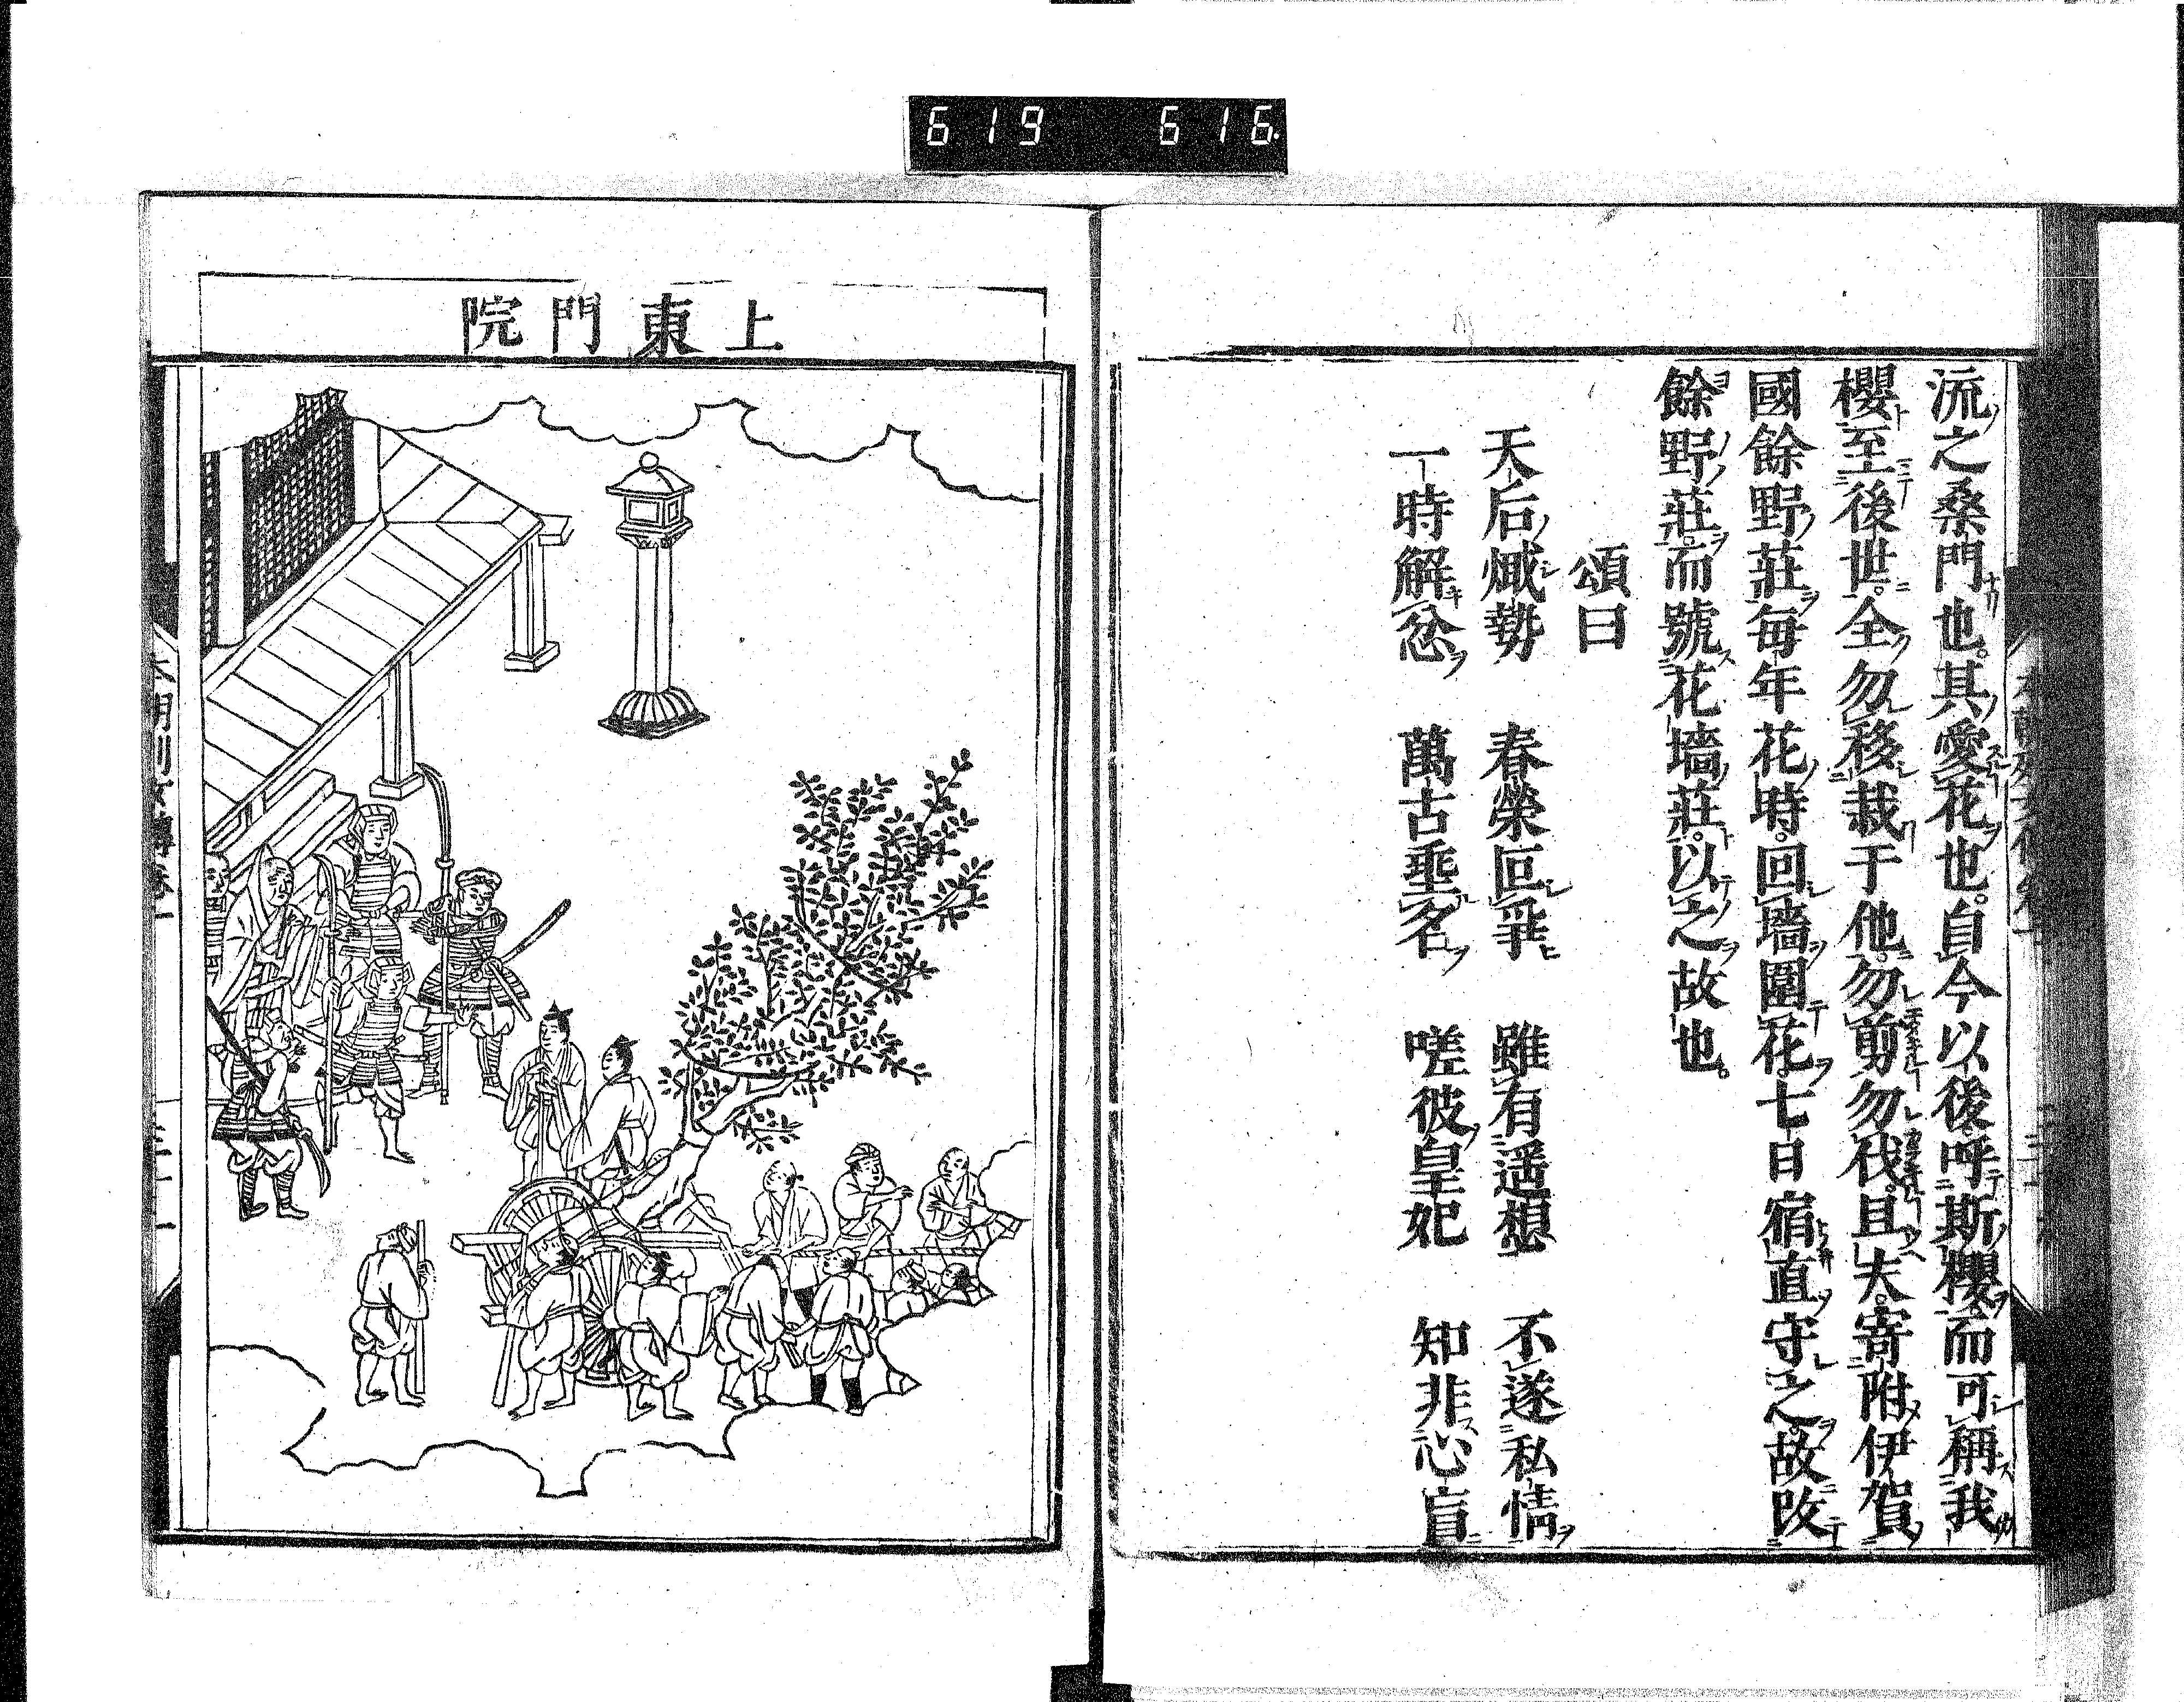 619 616.
流之桑門也。其愛花也。自今以後呼斯櫻而可稱我
櫻至後世。全勿移栽于他。勿剪勿伐。且夫寄附伊賀
國餘野莊每年花時。回墻圍花七日宿直守之。故改
餘野莊。而號花墻莊。以之故也。
頌曰
天后熾勢 春榮叵爭 雖有遥想 不遂私情
一時解忿 萬古垂名 嗟彼皇妃 知非心盲
上東門院